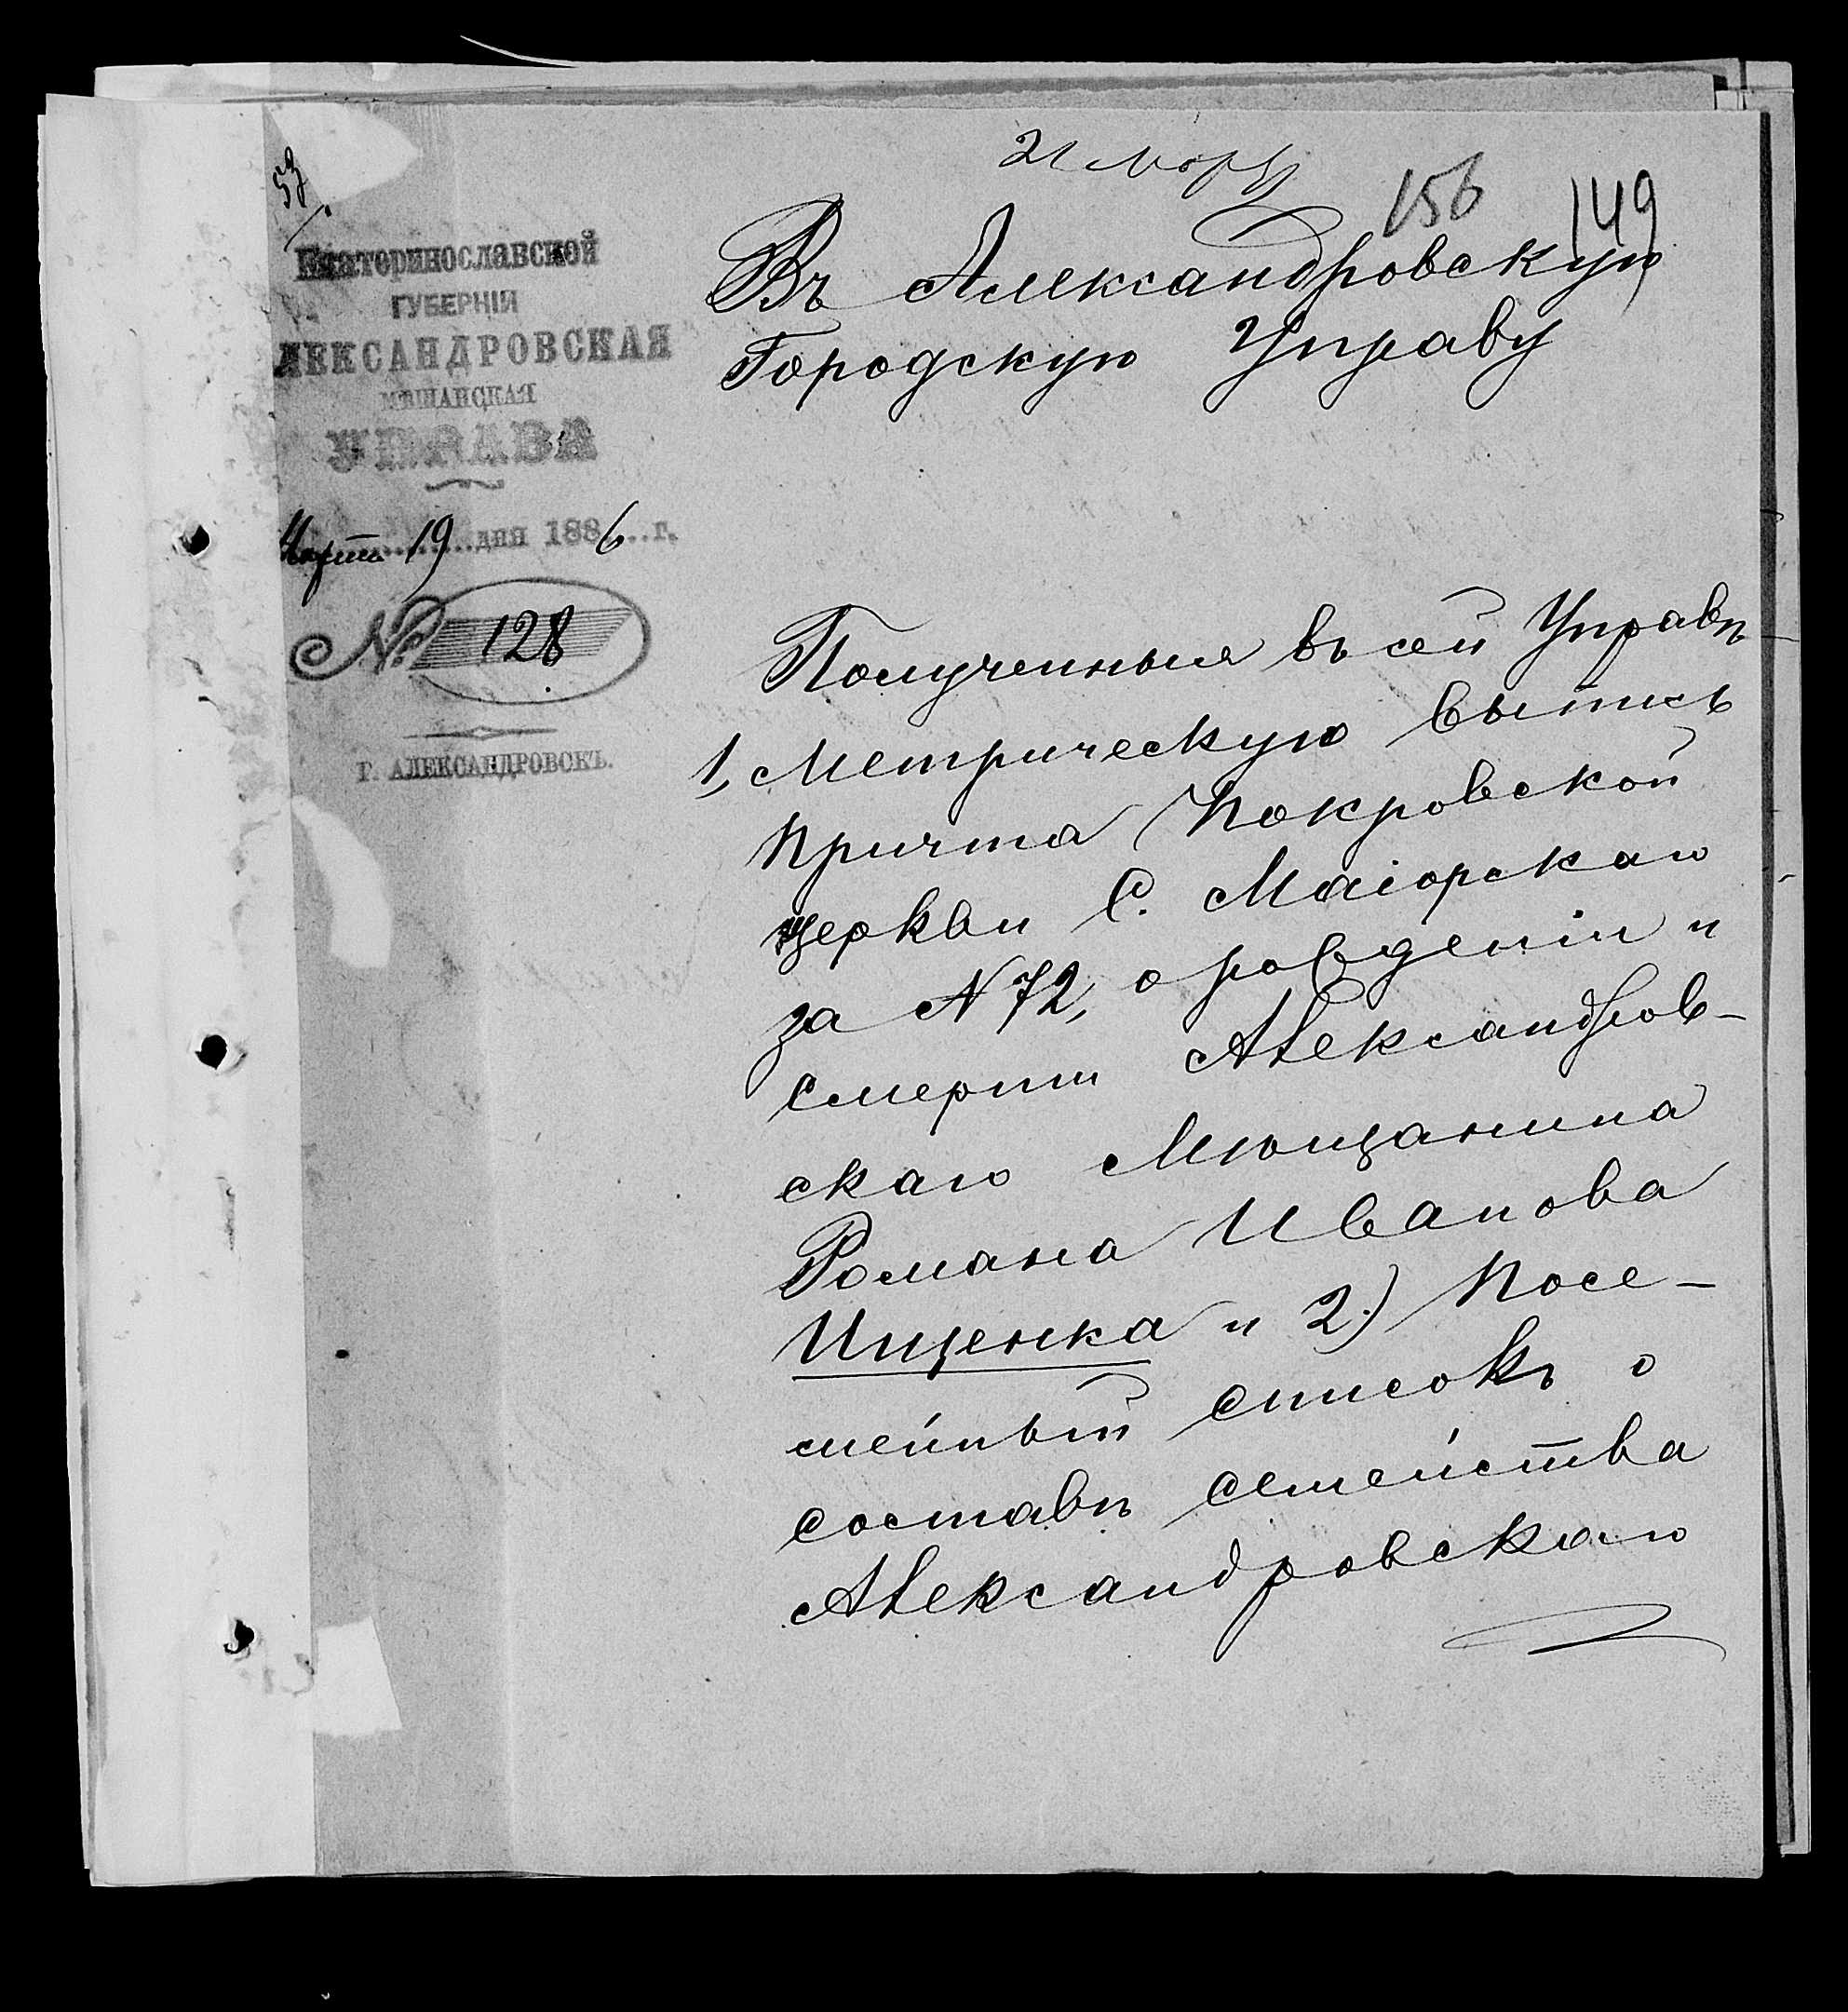 21 мар
156 149
53
Екатеринославской
ГУБЕРНІИ
ЛЕКСАНДРОВСКАЯ
МѢЩАНСКАЯ
УПРАВА
Марта 19 дня 1886 г.
№ 128
Г. АЛЕКСАНДРОВСКЪ.
Въ Александровскую
Городскую Управу
Полученные въ сей Управѣ
1, Метрическую выпись
Причта Покровской
церкви С. Маіорскаго
за N 72, о рождении и
смерти Александров-
скаго Мѣщанина
Романа Иванова
Ищенка и 2) Посе-
мейный список о
составѣ семейства
Александровскаго